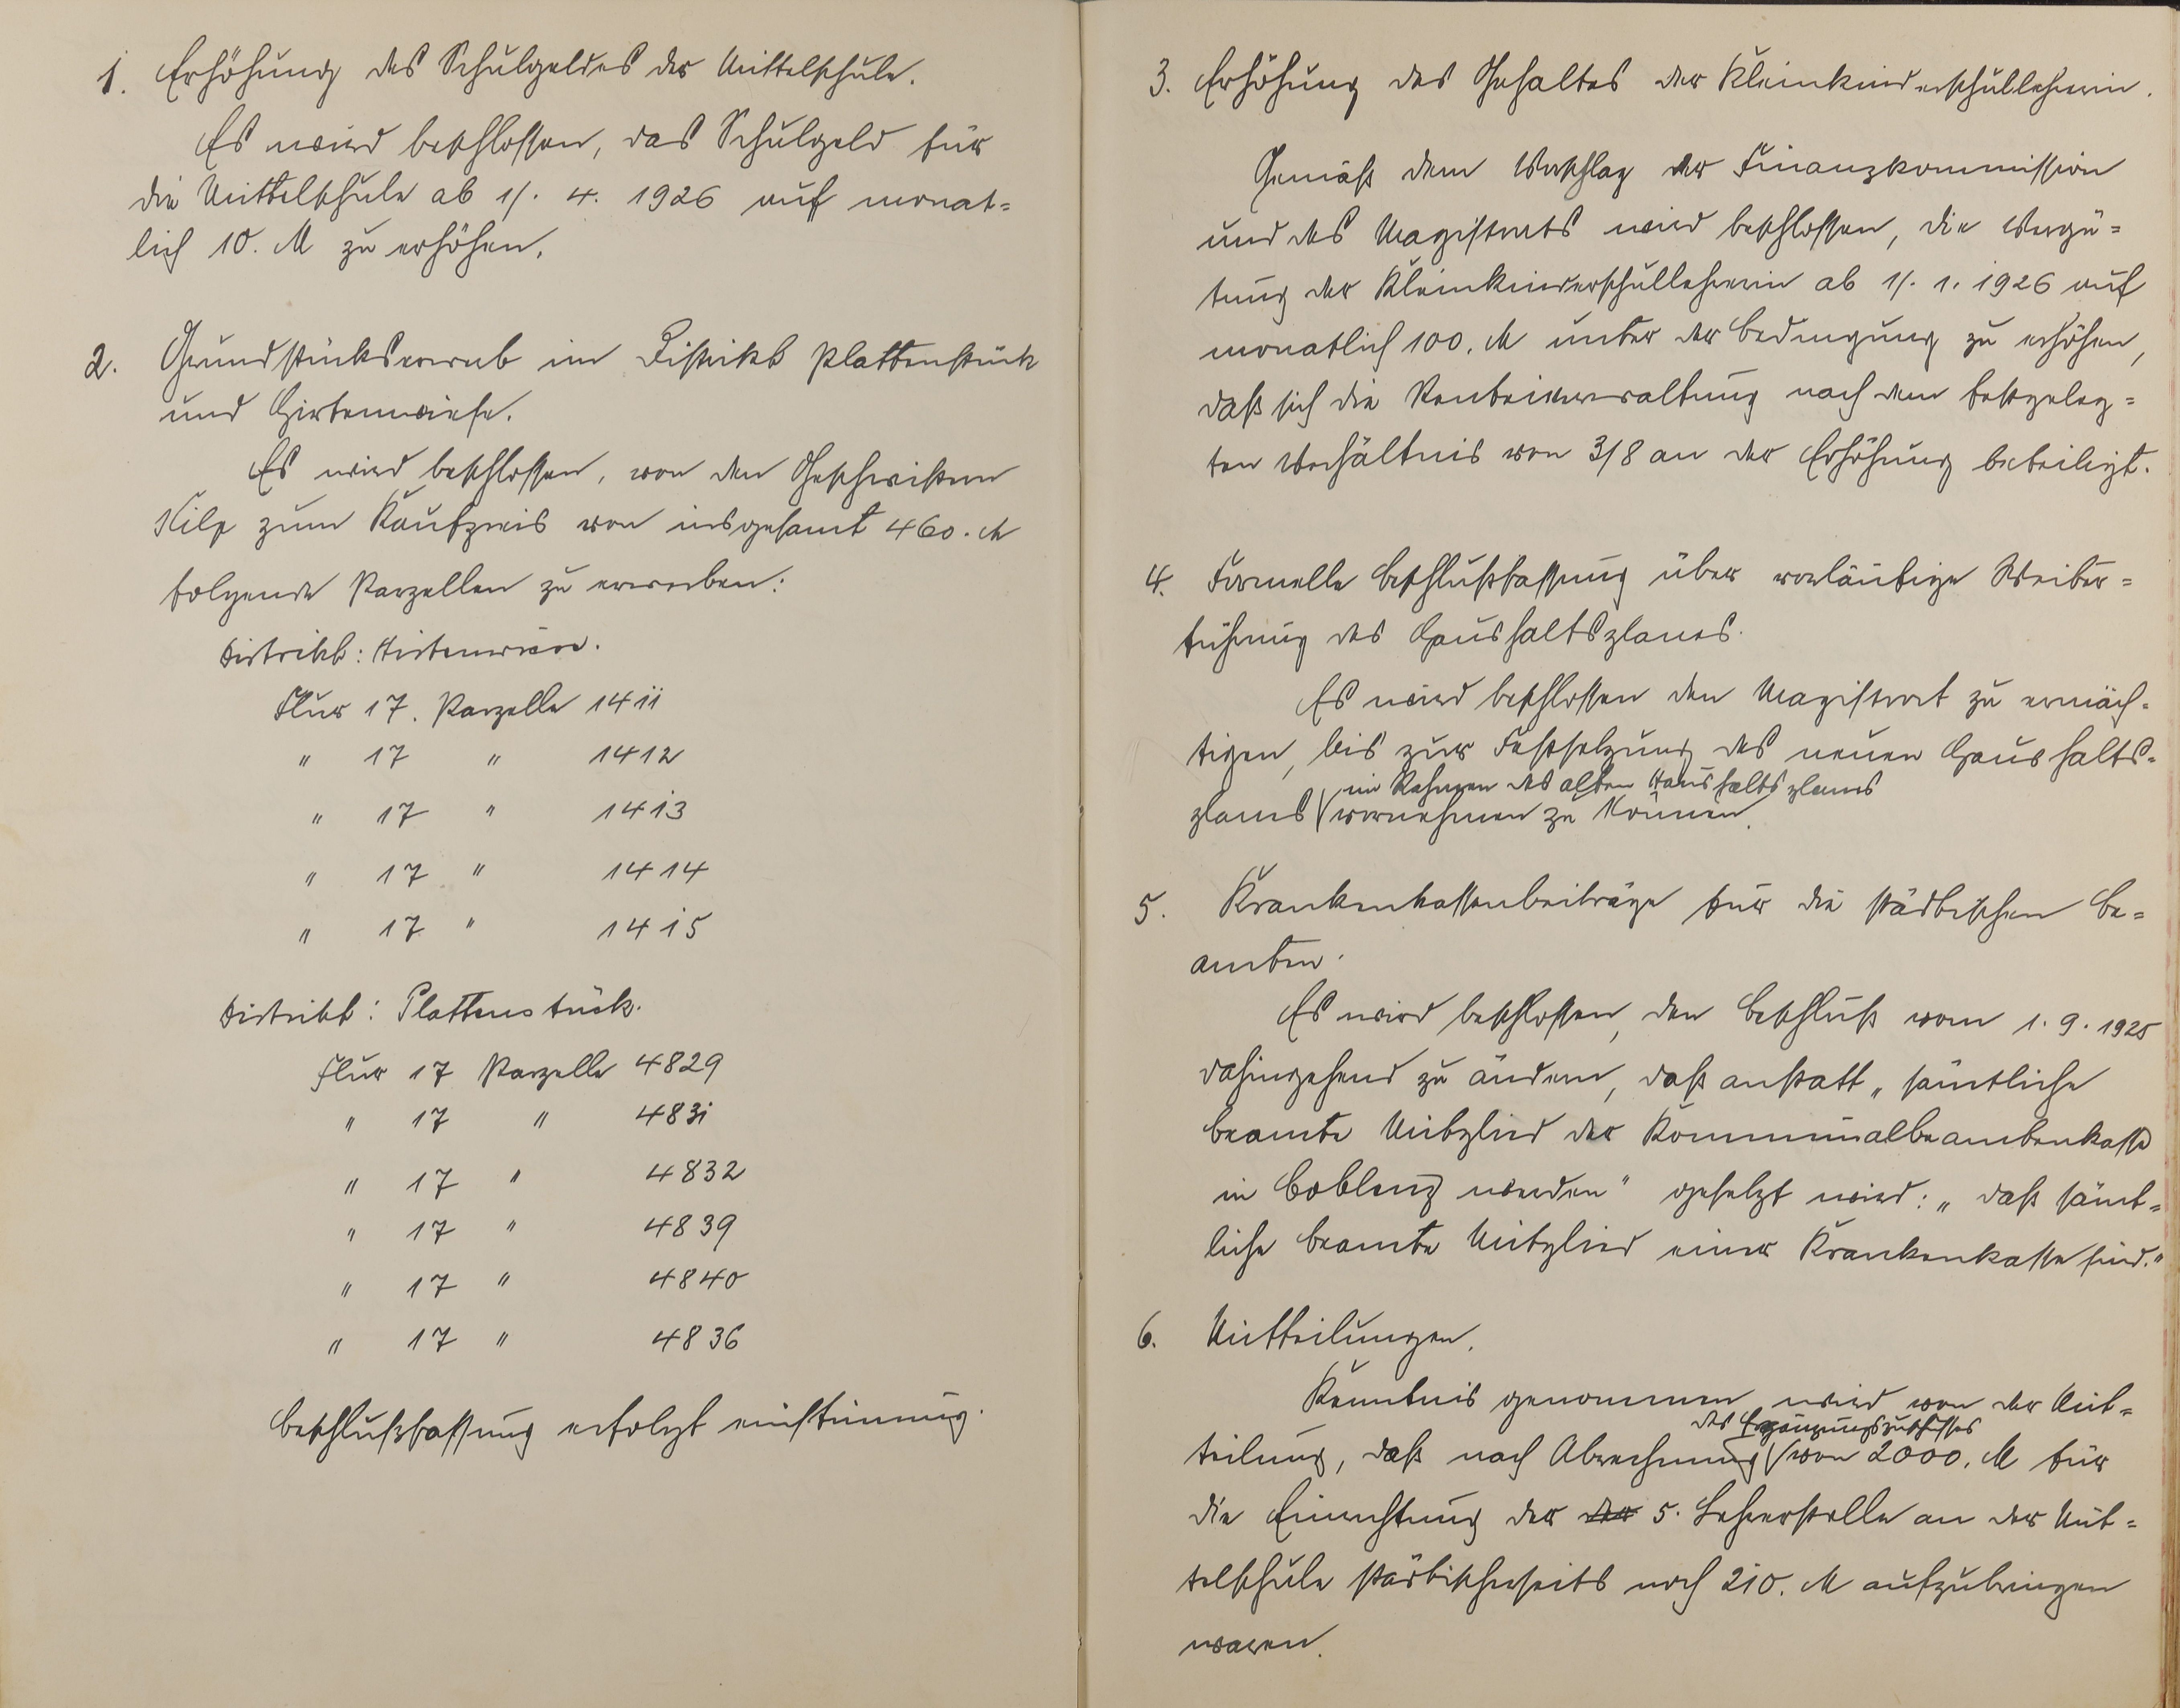 1. Erhöhung des Schulgeldes der Mittelschule.
Es wird beschlossen, das Schulgeld für
die Mittelschule ab 1/. 4. 1926 auf monat=
lich 10. M zu erhöhen.
2. Grundstückserwerb im Distrikt Plattenstück
und Hirtenwiese.
Es wird beschlossen, von den Geschwistern
Hilp zum Kaufpreis von insgesamt 460. M
folgende Parzellen zu erwerben:
Distrikt: Hirtenwiese.
Flur 17. Parzelle 1411
" 17 " 1412
" 17 " 1413
" 17 " 1414
" 17 " 1415
Distrikt: Plattenstück.
Flur 17 Parzelle 4829
" 17 " 4831
" 17 " 4832
" 17 " 4839
" 17 " 4840
" 17 " 4836
Beschlußfassung erfolgt einstimmig.
3. Erhöhung des Gehaltes der Kleinkinderschullehrerin.
Gemäß dem Vorschlag der Finanzkommission
und des Magistrats wird beschlossen, die Vergü=
tung der Kleinkinderschullehrerin ab 1/. 1. 1926 auf
monatlich 100. M unter der Bedingung zu erhöhen,
daß sich die Renteiverwaltung nach dem festgeleg=
ten Verhältnis von 3/8 an der Erhöhung beteiligt.
4. Formelle Beschlußfassung über vorläufige Weiter=
führung des Haushaltsplanes.
Es wird beschlossen den Magistrat zu ermäch=
tigen, bis zur Festsetzung des neuen Haushalts=
im Rahmen des alten Haushaltsplanes
planes vornehmen zu können.
5. Krankenkassenbeiträge für die städtischen Be=
amten.
Es wird beschlossen, den Beschluß vom 1. 9. 1925
dahingehend zu ändern, daß anstatt „sämtliche
Beamte Mitglied der Kommunalbeamtenkasse
in Coblenz werden" gesetzt wird: „daß sämt=
liche Beamte Mitglied einer Krankenkasse sind."
6. Mitteilungen.
Kenntnis genommen wird von der Mit=
des Ergänzungszuschusses
teilung, daß nach Abrechnung von 2000. M für
die Einrichtung der der 5. Lehrerstelle an der Mit=
telschule städtischerseits noch 210. M aufzubringen
waren.